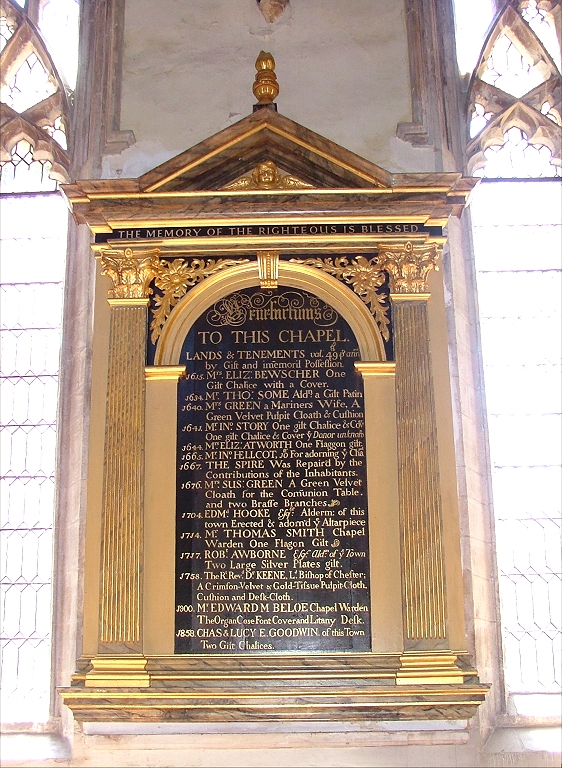 THE MEMORY OF THE RIGHTEOUS IS BLESSED
TO THIS CHAPEL.
LANDS & TENEMENTS val. 49£ p̄ ann
by Gift and im̄emoril Poſſeſsion.
1615. Mrs. ELIZ: BEWSCHER One
Gilt Chalice with a Cover.
1634. Mr. THO: SOME Aldn. a Gilt Patin
1640. Mrs. GREEN a Mariners Wife, A
Green Velvet Pulpit Cloath & Cuſhion
1642. Mr. INo. STORY One gilt Chalice & Cov
One gilt Chalice & Cover ye Donor unknon
1644. Mrs. ELIZ: ATWORTH One Flaggon gilt.
1665. Mr. INo. HELLCOT, For adorning ye Cha
1667. THE SPIRE Was Repair'd by the
Contributions of the Inhabitants.
1676. Mrs. SUS: GREEN A Green Velvet
Cloath for the Com̄union Table.
and two Braſſe Branches.
1704. EDMd. HOOKE Eſqr. Alderm: of this
town Erected & adorn'd ye Altarpiece
1714. Mr. THOMAS SMITH Chapel
Warden One Flagon Gilt
1717. ROBt. AWBORNE Eſq Aldn. of ye Town
Two Large Silver Plates gilt.
1758. The Rt. Revd. Dr. KEENE Ld. Biſhop of Cheſter;
A Crimſon-Velvet & Gold-Tiſſue Pulpit-Cloth,
Cuſhion and Deſk-Cloth.
1900. Mr EDWARD M BELOE Chapel Warden
The Organ Case Font Cover and Litany Deſk.
1858. CHAS & LUCY E. GOODWIN. of this Town
Two Gilt Chalices.